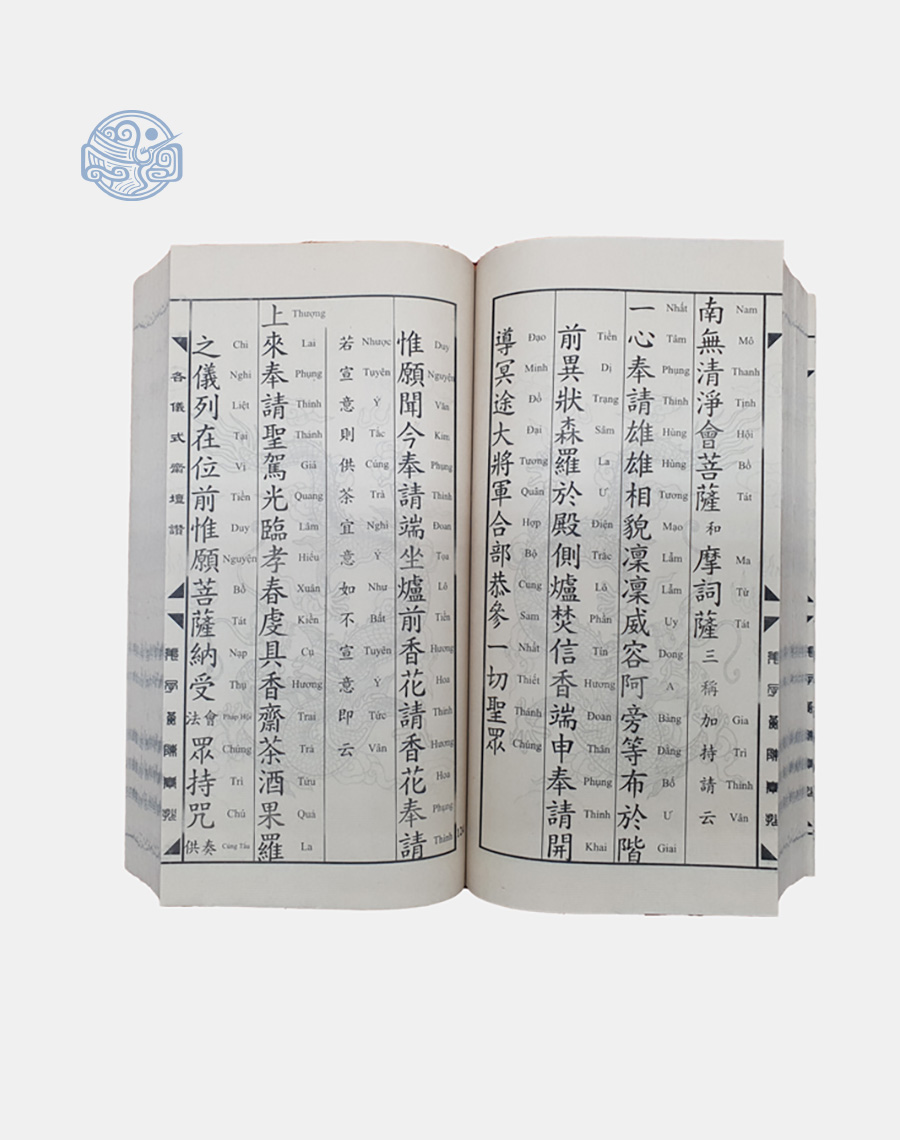 南無清淨會菩薩和摩詞薩三稱加持請云
Nam Mô Thanh Tịnh Hội Bồ Tát Ma Từ Tát Gia Trì Thỉnh Vân
一心奉請雄雄相貌凜凜威容阿旁等布於階
Nhất Tâm Phụng Thỉnh Hùng Hùng Tương Mạo Lẫm Lẫm Uy Dong A Bàng Đẳng Bố Ư Giai
前異狀森羅於殿側爐焚信香端申奉請開
Tiền Dị Trạng Sâm La Ư Điện Trắc Lô Phần Tín Hương Đoan Thân Phụng Thỉnh Khai
導冥途大將軍合部恭參一切聖眾
Đạo Minh Đồ Đại Tương Quân Hợp Bộ Cung Sam Nhất Thiết Thánh Chúng
惟願聞今奉請端坐爐前香花請香花奉請
Duy Nguyện Văn Kim Phụng Thỉnh Đoan Tọa Lô Tiền Hương Hoa Thỉnh Hương Hoa Thỉnh
若宣意則供茶宜意如不宣意即云
Nhược Tuyên Ý Tắc Cúng Trà Nghi Ý Như Bất Tuyên Ý Tức Vân
上來奉請聖駕光臨孝春虔具香齋茶酒果羅
Thượng Lai Phụng Thỉnh Thánh Giá Quang Lâm Hiếu Xuân Kiền Cụ Hương Trai Trà Tửu Quả La
之儀列在位前惟願菩薩納受法會眾持咒供奏
Chi Nghi Liệt Tại Vị Tiền Duy Nguyện Bồ Tát Nạp Thụ Pháp Hội Chứng Trì Chú Cúng Tấu
各儀式齋壇讚